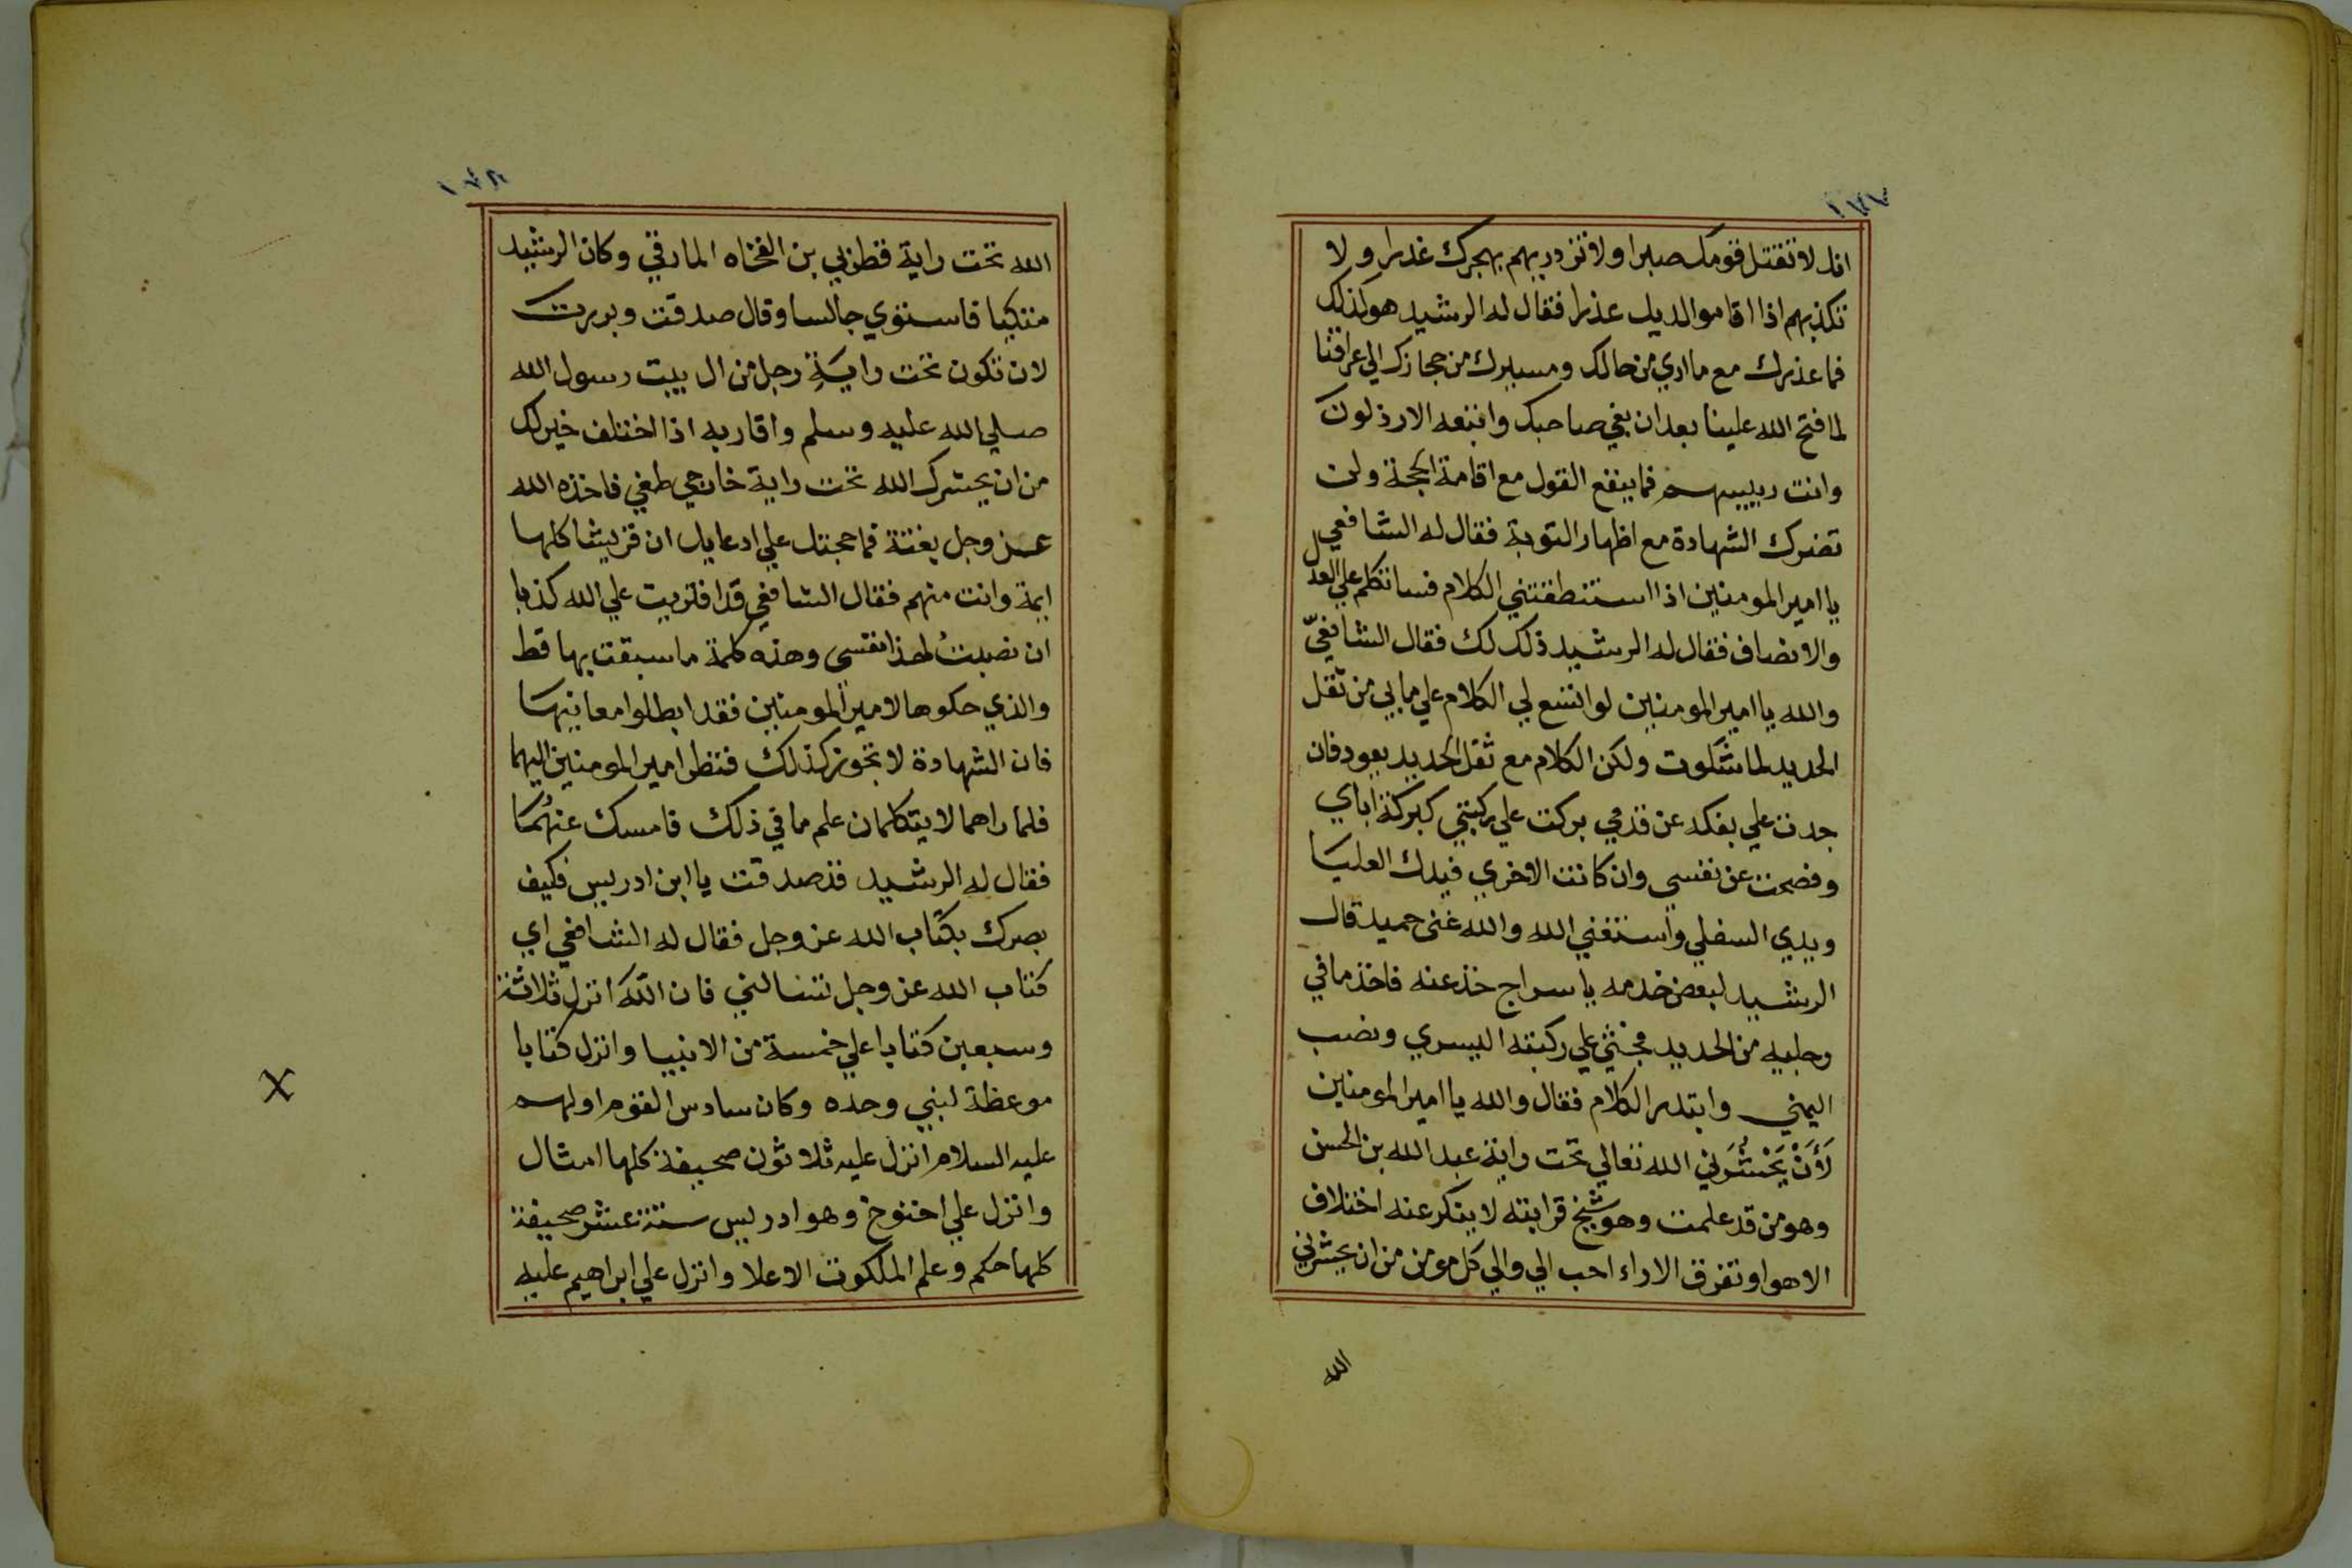 ١٧٧
انك لا تقتل قومك صبرا ولا تزدريهم بهجرك غدرا ولا
تكذبهم اذا اقاموا لديك عذرا فقال له الرشيد هو كذلك
فما عذرك مع ما اري من حالك ومسيرك من حجازك الي عراقنا
لما فتح الله علينا بعد ان بغي صاحبك واتبعه الارذلون
وانت رييسهم فما ينفع القول مع اقامة الحجة ولن
تضرك الشهادة مع اظهار التوبة فقال له الشافعي
يا امير المومنين اذا استنطقتني الكلام فسانتكلم علي العدل
والانصاف فقال له الرشيد ذلك لك فقال الشافعيّ
والله يا امير المومنين لو اتسع لي الكلام علي ما بي من ثقل
الحديد لما شكوت ولكن الكلام مع ثقل الحديد يعود فان
جدت علي بفكه عن قدمي بركت علي ركبتي كبركة اباي
وفصحت عن نفسي وان كانت الاخري فيدك العليا
ويدي السفلي واستغني الله والله غني حميد قال
الرشيد لبعض خدمه يا سراج خذ عنه فاخذ ما في
رجليه من الحديد فجثي علي ركبته اليسري ونصب
اليمني وابتدر الكلام فقال والله يا امير المومنين
لَأَنْ يَحْشُرَني الله تعالي تحت راية عبد الله بن الحسن
وهو من قد علمت وهو شيخ قرابته لا ينكر عنه اختلاف
الاهوا وتفرق الاراء احب الي والي كل مومن من ان يحشرني
الله
١٧٨
الله تحت راية قطري بن الفجاه المارقي وكان الرشيد
متكيا فاستوي جالسا وقال صدقت وبررت
لان تكون تحت راية رجل من ال بيت رسول الله
صلي الله عليه وسلم واقاربه اذا اختلف خير لك
من ان يحشرك الله تحت راية خارجي طغي فاخذه الله
عز وجل بغتة فما حجتك علي ادعايك ان قريشا كلها
ايمة وانت منهم فقال الشافعي قد افتريت علي الله كذبا
ان نصبتُ لهذا نفسي وهذه كلمة ما سبقت بها قط
والذي حكوها لامير المومنين فقد ابطلوا معانيها
فان الشهادة لا تجوز كذلك فنظر امير المومنين اليهما
فلما راهما لا يتكلمان علم ما في ذلك فامسك عنهُما
فقال له الرشيد قد صدقت يا ابن ادريس فكيف
بصرك بكتاب الله عز وجل فقال له الشافعي اي
كتاب الله عز وجل تسالني فان الله انزل ثلاثة
وسبعين كتابا علي خمسة من الانبيا وانزل كتابا
موعظة لنبي وحده وكان سادس القوم اولهم
عليه السلام انزل عليه ثلاثون صحيفة كلها امثال
وانزل علي اخنوخ وهو ادريس ستة عشر صحيفة
كلها حكم وعلم الملكوت الاعلا وانزل علي ابراهيم عليه
X